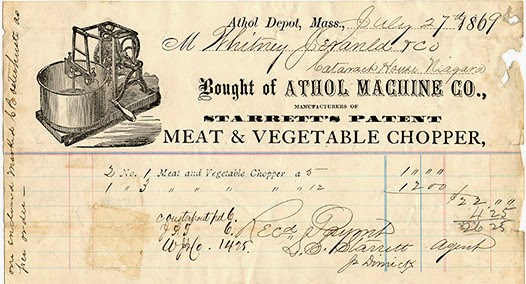 Athol Depot, Mass., July 27th 1869
M Whitney & Co
Cataract House Niagara
Bought of ATHOL MACHINE CO.,
MANUFACTURERS OF
STARRETT'S PATENT
MEAT & VEGETABLE CHOPPER,
2 No. 1 Meat and Vegetable Chopper a 5— 10 00
1 " 3 " " " " 12 12 00
$22 " "
4 25
26 25
pd 6.
6.
14 25.
Recd Paymt
L. S. Starrett Agent
per order —